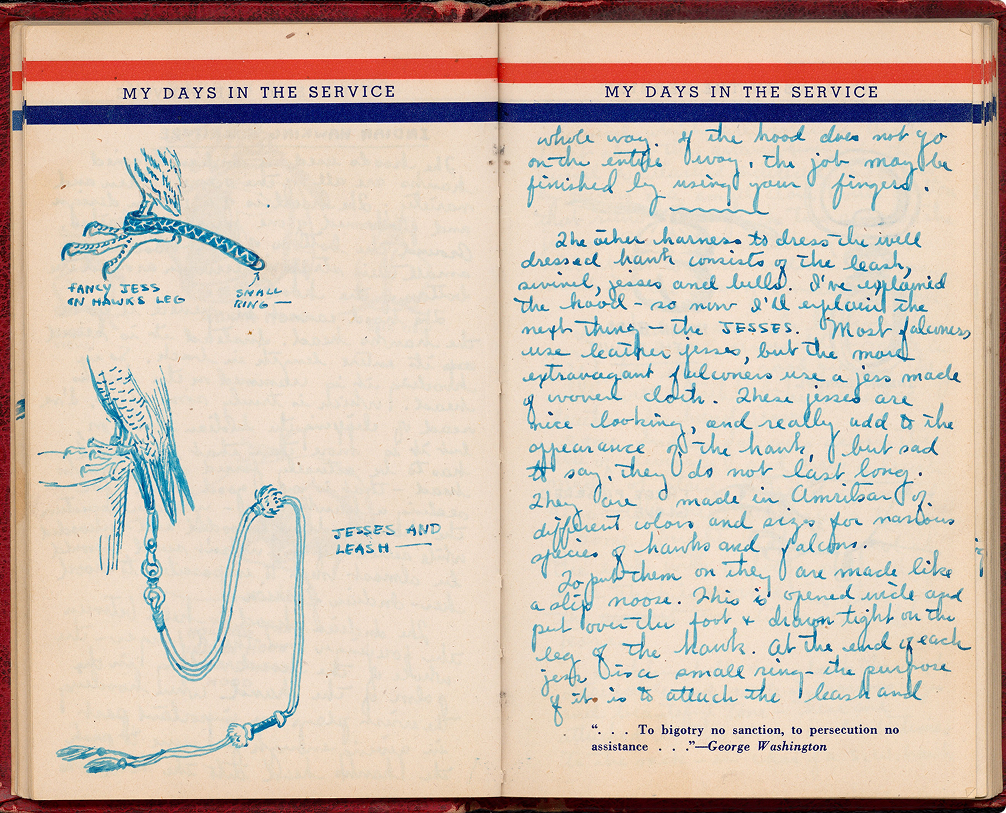 MY DAYS IN THE SERVICE
FANCY JESS
ON HAWKS LEG
SMALL
RING —
JESSES AND
LEASH —
MY DAYS IN THE SERVICE
whole way. If the hood does not go
on the entire way, the job may be
finished by using your fingers.
The other harness to dress the well
dressed hawk consists of the leash,
swivel, jesses and bells. I've explained
the hood - so now I'll explain the
next thing — the JESSES. Most falconers
use leather jesses, but the more
extravagant falconers use a jess made
of woven cloth. These jesses are
nice looking, and really add to the
appearance of the hawk, but sad
to say, they do not last long.
They are made in Amritsar of
different colors and sizes for various
species of hawks and falcons.
To put them on they are made like
a slip noose. This is opened wide and
put over the foot & drawn tight on the
leg of the hawk. At the end of each
jess is a small ring - the purpose
of it is to attach the leash and
". . . To bigotry no sanction, to persecution no
assistance . . ."—George Washington